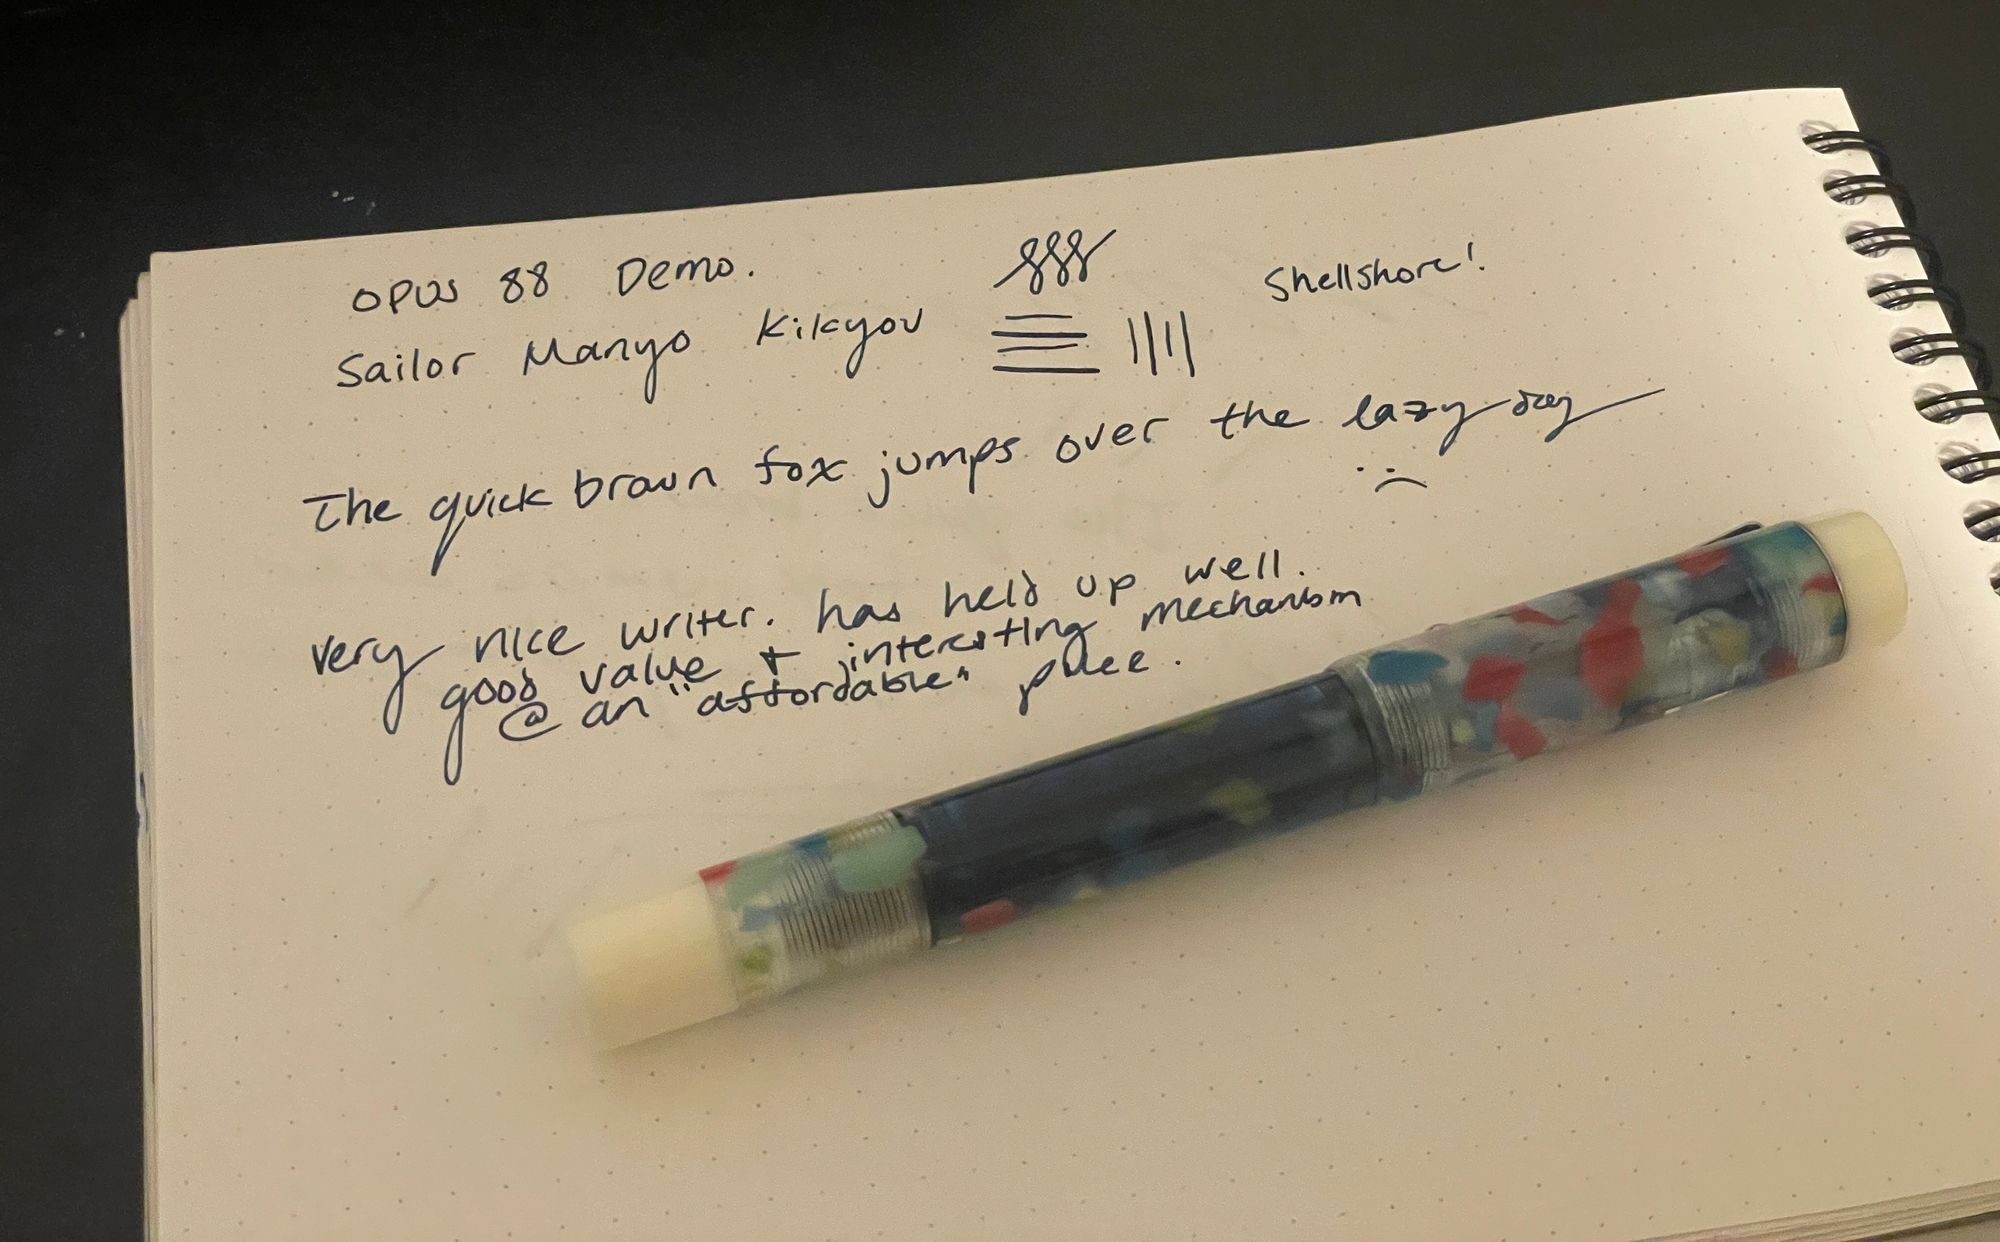 OPUS 88 Demo.
Shellshore!
Sailor Manyo Kikyou
The quick brown fox jumps over the lazy dog
:(
very nice writer. has held up well.
good value + interesting mechanism
@ an "affordable" price.